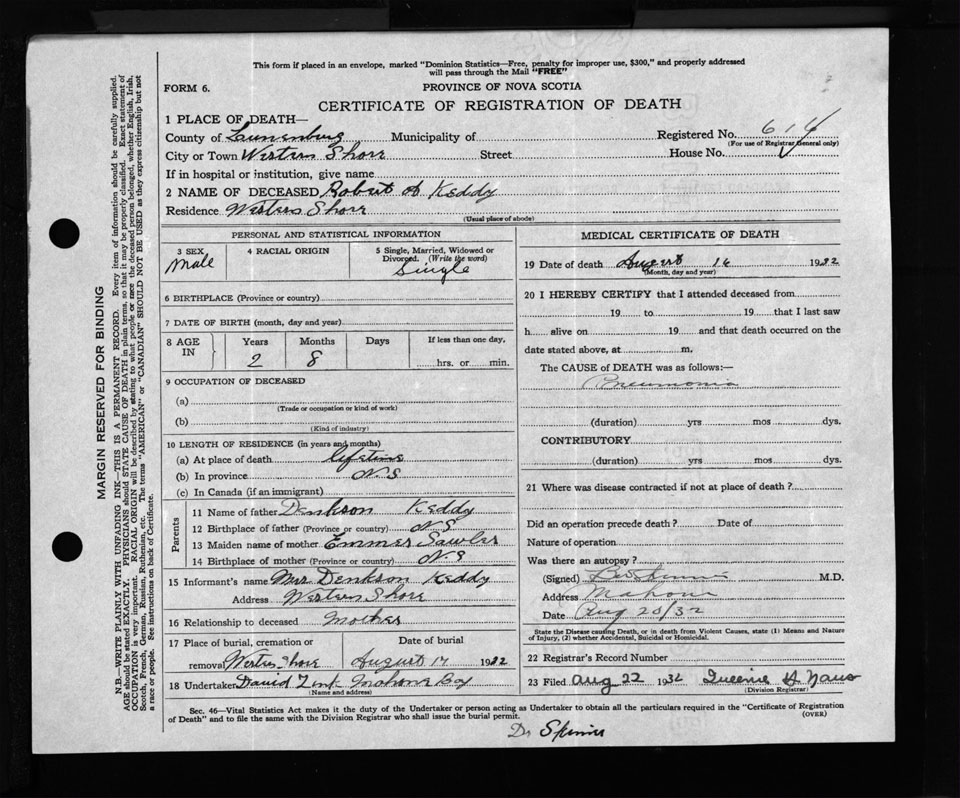 This form if placed in an envelope, marked "Dominion Statistics—Free, penalty for improper use, $300," and properly addressed
will pass through the Mail "FREE"
FORM 6.
PROVINCE OF NOVA SCOTIA
CERTIFICATE OF REGISTRATION OF DEATH
1 PLACE OF DEATH—
County of Lunenburg Municipality of Registered No. 614
(For use of Registrar General only)
City or Town Western Shore Street House No.
If in hospital or institution, give name
2 NAME OF DECEASED Robert A Keddy
Residence Western Shore
(Usual place of abode)
PERSONAL AND STATISTICAL INFORMATION
3 SEX Male
4 RACIAL ORIGIN
5 Single, Married, Widowed or Divorced. (Write the word) Single
6 BIRTHPLACE (Province or country)
7 DATE OF BIRTH (month, day and year)
8 AGE IN Years Months Days If less than one day,
2 8 hrs. or min.
9 OCCUPATION OF DECEASED
(a)
(Trade or occupation or kind of work)
(b)
(Kind of industry)
10 LENGTH OF RESIDENCE (in years and months)
(a) At place of death lifetime
(b) In province N.S
(c) In Canada (if an immigrant)
Parents
11 Name of father Denkson Keddy
12 Birthplace of father (Province or country) N S
13 Maiden name of mother Emmer Sawler
14 Birthplace of mother (Province or country) N.S
15 Informant's name Mrs Denkson Keddy
Address Western Shore
16 Relationship to deceased Mother
17 Place of burial, cremation or Date of burial
removal Western Shore August 17 1932
18 Undertaker David Zink Mahone Bay
(Name and address)
MEDICAL CERTIFICATE OF DEATH
19 Date of death August 16 1932
(Month, day and year)
20 I HEREBY CERTIFY that I attended deceased from
19 to 19 that I last saw
h alive on 19 and that death occurred on
date stated above, at m.
The CAUSE of DEATH was as follows:—
Pneumonia
(duration) yrs mos dys.
CONTRIBUTORY
(duration) yrs mos dys.
21 Where was disease contracted if not at place of death?
Did an operation precede death? Date of
Nature of operation
Was there an autopsy?
(Signed) M.D.
Address Mahone
Date Aug 20/32
State the Disease causing Death, or in death from Violent Causes, state (1) Means and Nature
of Injury, (2) whether Accidental, Suicidal or Homicidal.
22 Registrar's Record Number
23 Filed Aug 22 1932 Queenie
(Division Registrar)
Sec. 46—Vital Statistics Act makes it the duty of the Undertaker or person acting as Undertaker to obtain all the particulars required in the "Certificate of Registration
of Death" and to file the same with the Division Registrar who shall issue the burial permit. (OVER)
Dr
MARGIN RESERVED FOR BINDING
N.B.—WRITE PLAINLY WITH UNFADING INK—THIS IS A PERMANENT RECORD. Every item of information should be carefully supplied.
AGE should be stated EXACTLY. PHYSICIANS should STATE CAUSE OF DEATH in plain terms, so that it may be properly classified. Exact statement of
OCCUPATION is very important. RACIAL ORIGIN will be described by stating to what people or race the deceased person belonged, whether English, Irish,
Scotch, French, German, Russian, Ruthenian, etc. The terms "AMERICAN" or "CANADIAN" SHOULD NOT BE USED as they express citizenship but not
a race or people. See instructions on back of Certificate.